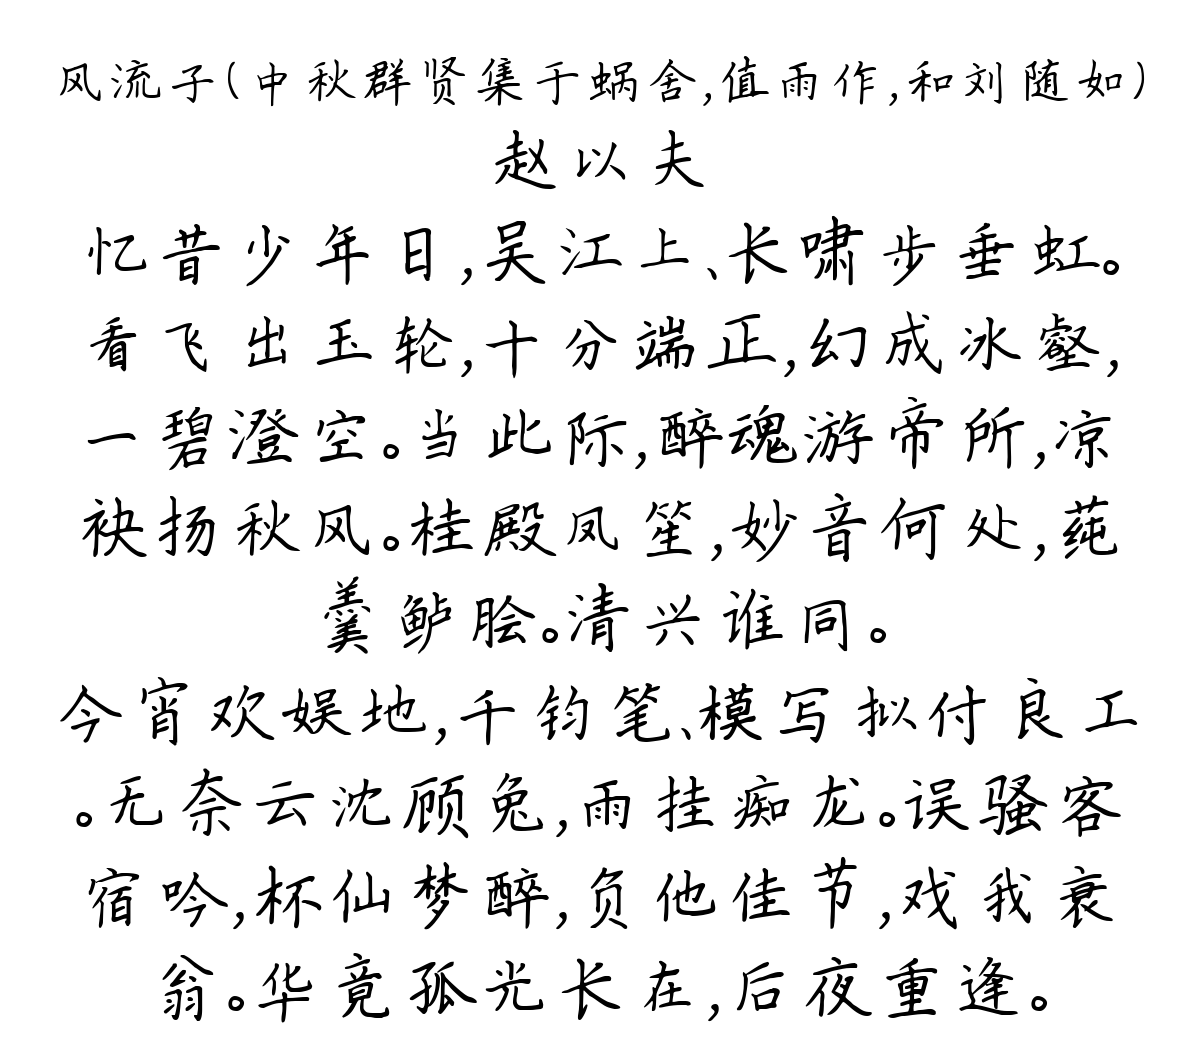 风流子(中秋群贤集于蜗舍,值雨作,和刘随如)
赵以夫
忆昔少年日,吴江上、长啸步垂虹。
看飞出玉轮,十分端正,幻成冰壑,
一碧澄空。当此际,醉魂游帝所,凉
袂扬秋风。桂殿凤笙,妙音何处,莼
羹鲈脍。清兴谁同。
今宵欢娱地,千钧笔、模写拟付良工
。无奈云沈顾兔,雨挂痴龙。误骚客
宿吟,杯仙梦醉,负他佳节,戏我衰
翁。华竟孤光长在,后夜重逢。